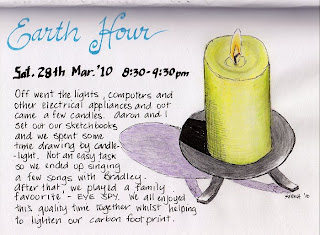 Earth Hour
Sat. 28th Mar. '10 8:30-9:30pm
Off went the lights, computers and
other electrical appliances and out
came a few candles. Aaron and I
set out our sketchbooks
and we spent some
time drawing by candle-
-light. Not an easy task
so we ended up singing
a few songs with Bradley.
After that, we played a family
favourite - EYE SPY. We all enjoyed
this quality time together whilst helping
to lighten our carbon foot print.